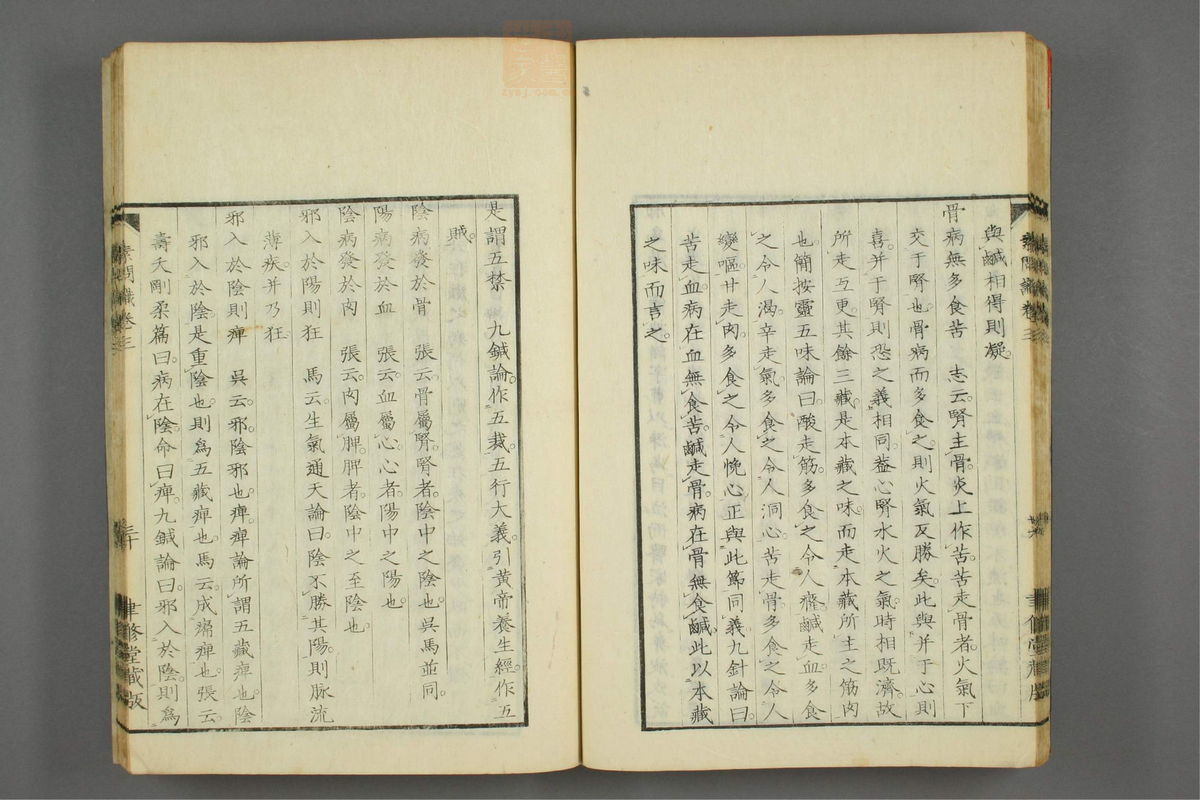 與鹹相得則凝
骨病無多食苦 志云腎主骨炎上作苦苦走骨者火氣下
交于腎也骨病而多食之則火氣反勝矣此與并于心則
喜并于腎則恐之義相同葢心腎水火之氣時相既濟故
所走互更其餘三藏是本藏之味而走本藏所主之筋肉
也簡按靈五味論曰酸走筋多食之令人癃鹹走血多食
之令人渴辛走氣多食之令人洞心苦走骨多食之令人
變嘔甘走肉多食之令人悗心正與此節同義九針論曰
苦走血病在血無食苦鹹走骨病在骨無食鹹此以本藏
之味而言之
是謂五禁 九鍼論作五裁五行大義引黄帝養生經作五
賊
陰病發於骨 張云骨屬腎腎者陰中之陰也吳馬並同
陽病發於血 張云血屬心心者陽中之陽也
陰病發於肉 張云肉屬脾脾者陰中之至陰也
邪入於陽則狂 馬云生氣通天論曰陰不勝其陽則脉流
薄疾并乃狂
邪入於陰則痺 吳云邪陰邪也痺痺論所謂五藏痺也
邪入於陰是重陰也則爲五藏痺也馬云成痛痺也張云
壽夭剛柔篇曰病在陰命曰痺九鍼論曰邪入於陰則爲
素問識卷三
三十
聿修堂藏版